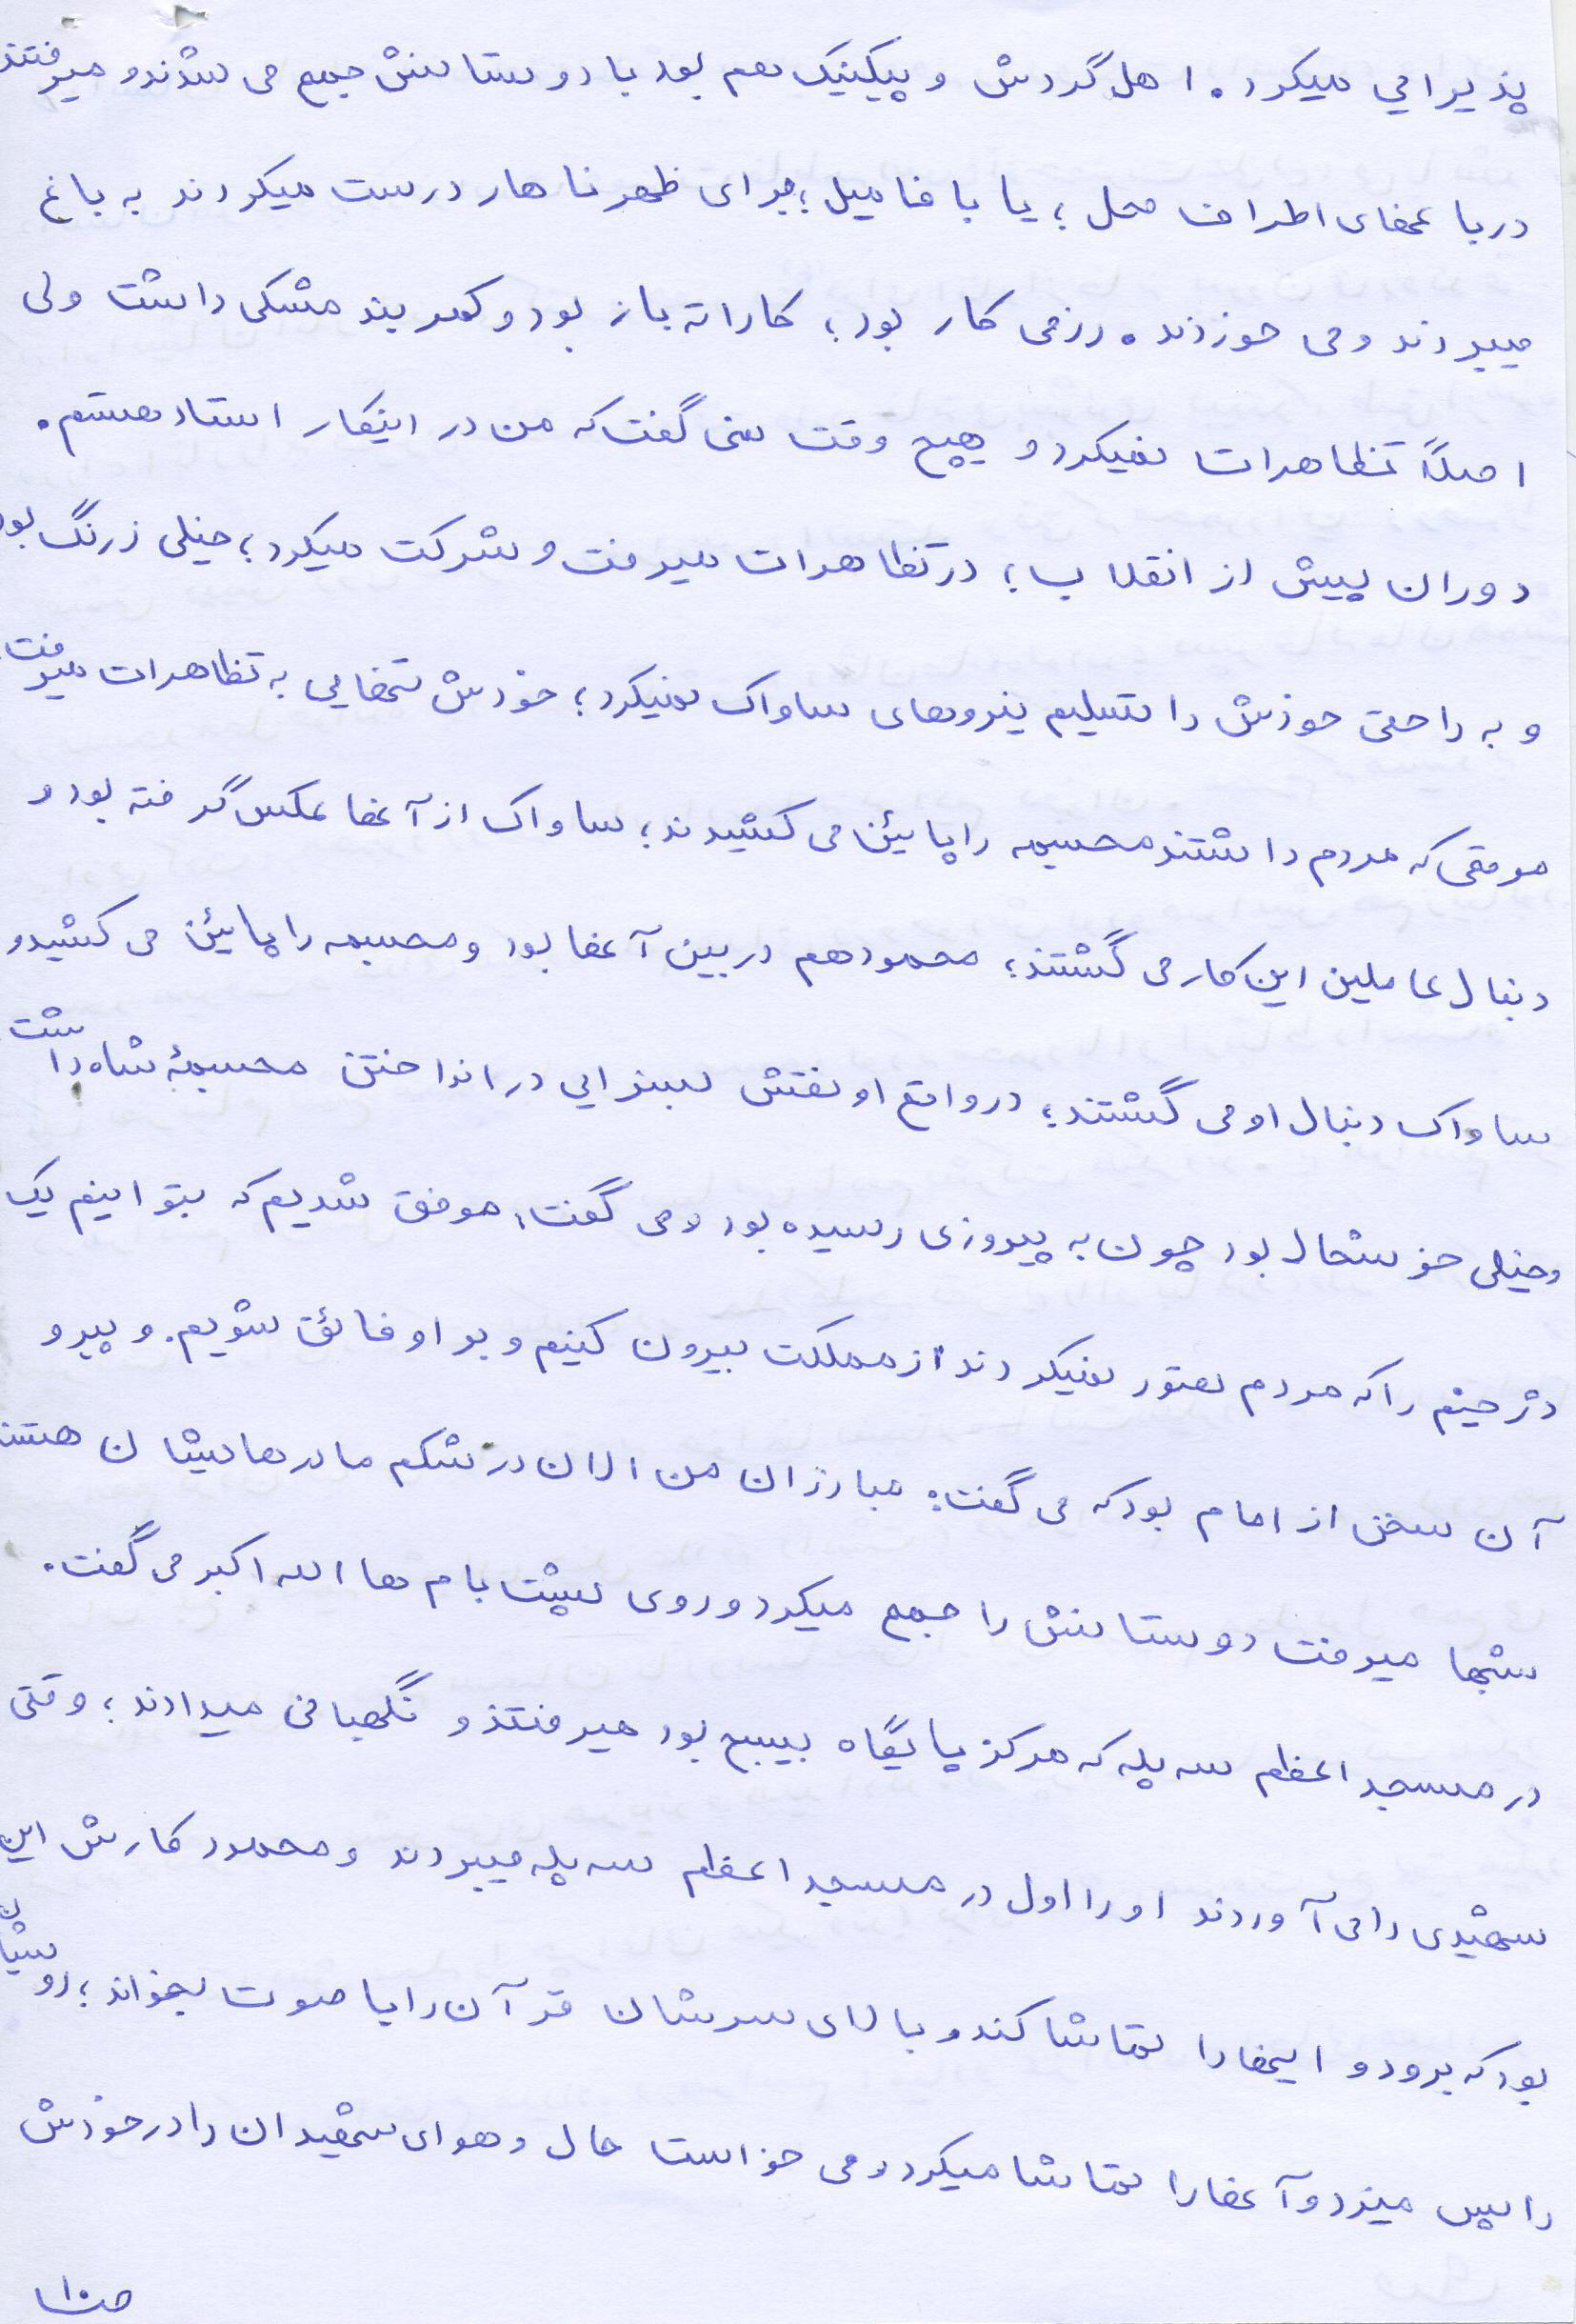 پذیرایی میکرد. اهل گردش و پیکنیک هم بود با دوستانش جمع می شدند و میرفتند
در باغهای اطراف محل؛ یا با فامیل؛ برای ظهر ناهار درست میکردند به باغ
میبردند و می خوردند. رزمی کار بود؛ کاراته باز بود و کمربند مشکی داشت ولی
اصلاً تظاهرات نمیکرد و هیچ وقت نمی گفت که من در اینکار استاد هستم.
دوران پیش از انقلاب؛ در تظاهرات میرفت و شرکت میکرد؛ خیلی زرنگ بود
و به راحتی خودش را تسلیم نیروهای ساواک نمیکرد؛ خودش تنهایی به تظاهرات میرفت
موقعی که مردم داشتند مجسمه را پائین می کشیدند؛ ساواک از آنها عکس گرفته بود و
دنبال عاملین این کار می گشتند؛ محمود هم در بین آنها بود و مجسمه را پائین می کشید و
ساواک دنبال او می گشتند؛ در واقع او نقش بسزایی در انداختن مجسمهٔ شاه داشت
و خیلی خوشحال بود چون به پیروزی رسیده بود و می گفت؛ موفق شدیم که بتوانیم یک
دژخیم را که مردم تصور نمیکردند از مملکت بیرون کنیم و بر او فائق شویم. و پیرو
آن سخن از امام بود که می گفت: مبارزان من الان در شکم مادرهایشان هستند
شبها میرفت دوستانش را جمع میکرد و روی پشت بام ها الله اکبر می گفت.
در مسجد اعظم سه پله که مرکز پایگاه بسیج بود میرفتند و نگهبانی میدادند؛ وقتی
شهیدی را می آوردند او را اول در مسجد اعظم سه پله میبردند و محمود کارش این
بود که برود و اینها را تماشا کند و بالای سرشان قرآن را با صوت بخواند؛ روشان
را پس میزد و آنها را تماشا میکرد و می خواست حال و هوای شهیدان را در خودش
ص۱۰